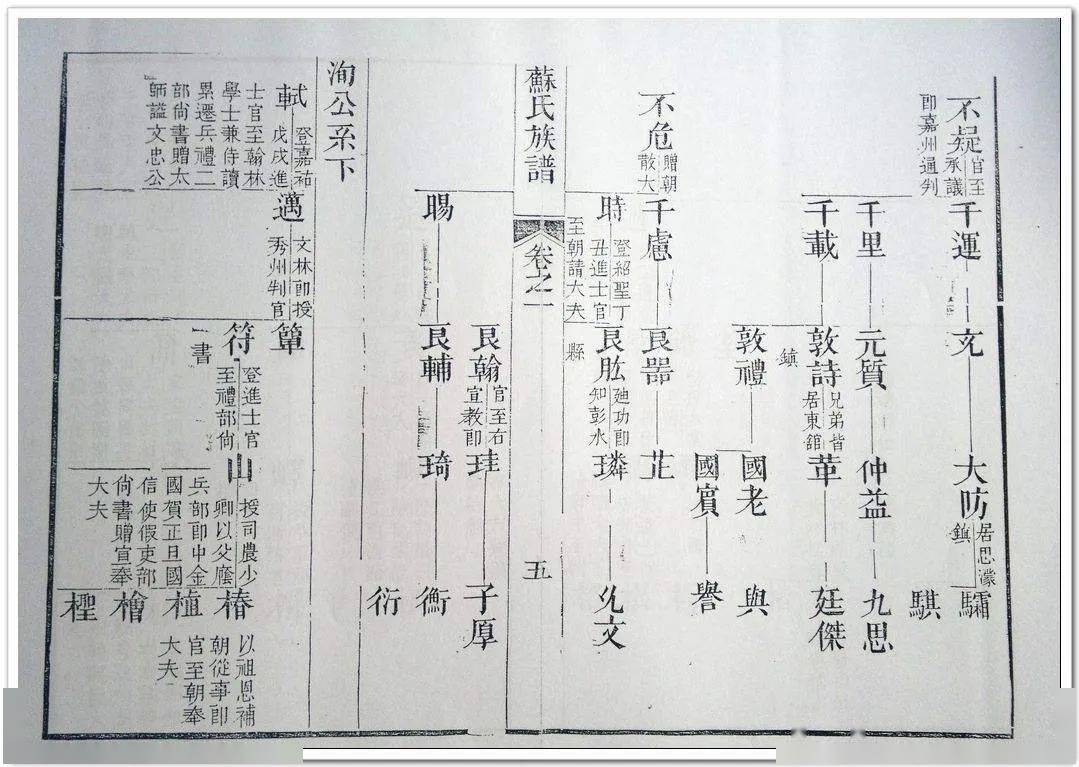 不疑
官至
承議
郎嘉州通判
千運
充
大防
居思濛
鎮
驌
騏
千里
元質
仲益
九思
千載
敦詩
兄弟皆
居東舘
鎮
革
廷傑
敦禮
國老
與
國賓
譽
不危
贈朝
散大
千慮
良器
芷
時
登紹聖丁
丑進士官
至朝請大夫
良肱
廸功郎
知彭水
縣
璘
允文
蘇氏族譜
卷之一
五
良翰
官至右
宣教郎
珪
子厚
賜
良輔
琦
衡
衍
洵公系下
軾
登嘉祐
戊戌進
士官至翰林
學士兼侍讀
累遷兵禮二
部尚書贈太
師謚文忠公
邁
文林郎授
秀州判官
簞
符
登進士官
至禮部尚
書
山
授司農少
卿以父廕
兵部郎中金
國賀正旦國
信使假吏部
尚書贈宣奉
大夫
椿
以祖恩補
朝從事郎
官至朝奉
大夫
植
檜
檉